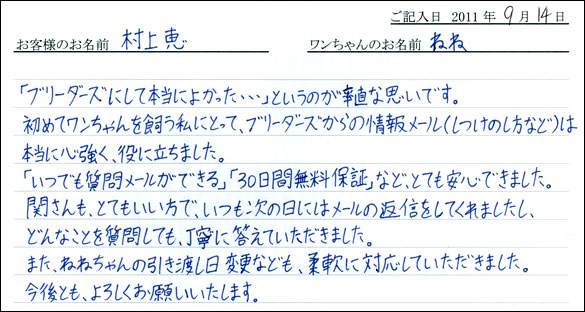 ご記入日 2011年9月14日
お客様のお名前 村上恵 ワンちゃんのお名前 ねね
「ブリーダーズにして本当によかった・・・」というのが率直な思いです。
初めてワンちゃんを飼う私にとって、ブリーダーズからの情報メール(しつけのし方など)は
本当に心強く、役に立ちました。
「いつでも質問メールができる」「30日間無料保証」など、とても安心できました。
関さんも、とてもいい方で、いつも次の日にはメールの返信をしてくれましたし、
どんなことを質問しても、丁寧に答えていただきました。
また、ねねちゃんの引き渡し日変更なども、柔軟に対応していただきました。
今後とも、よろしくお願いいたします。